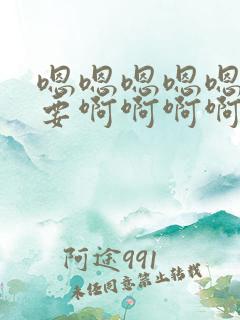 嗯嗯嗯嗯嗯
要啊啊啊啊
阿途991
未经同意禁止转载